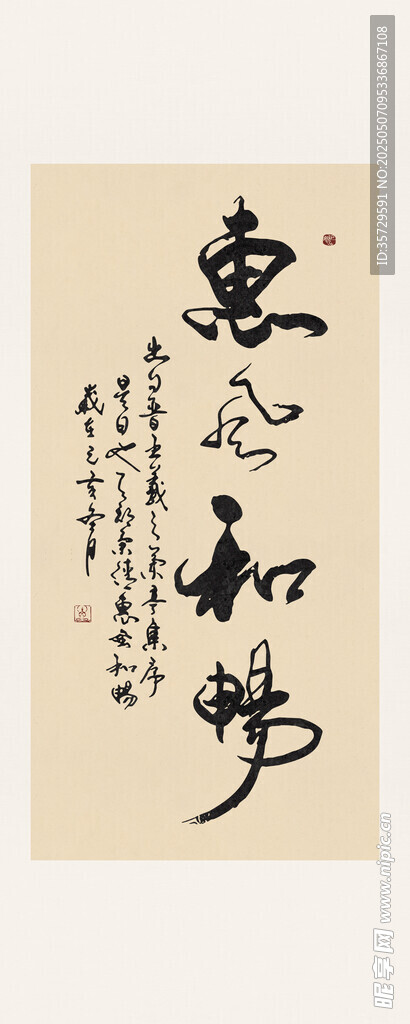 惠风和暢
出自晋王羲之兰亭集序
是日也天朗气清惠风和暢
歲在己亥冬月
ID:35729591 NO:20250507095336867108
昵享网 www.nipic.cn